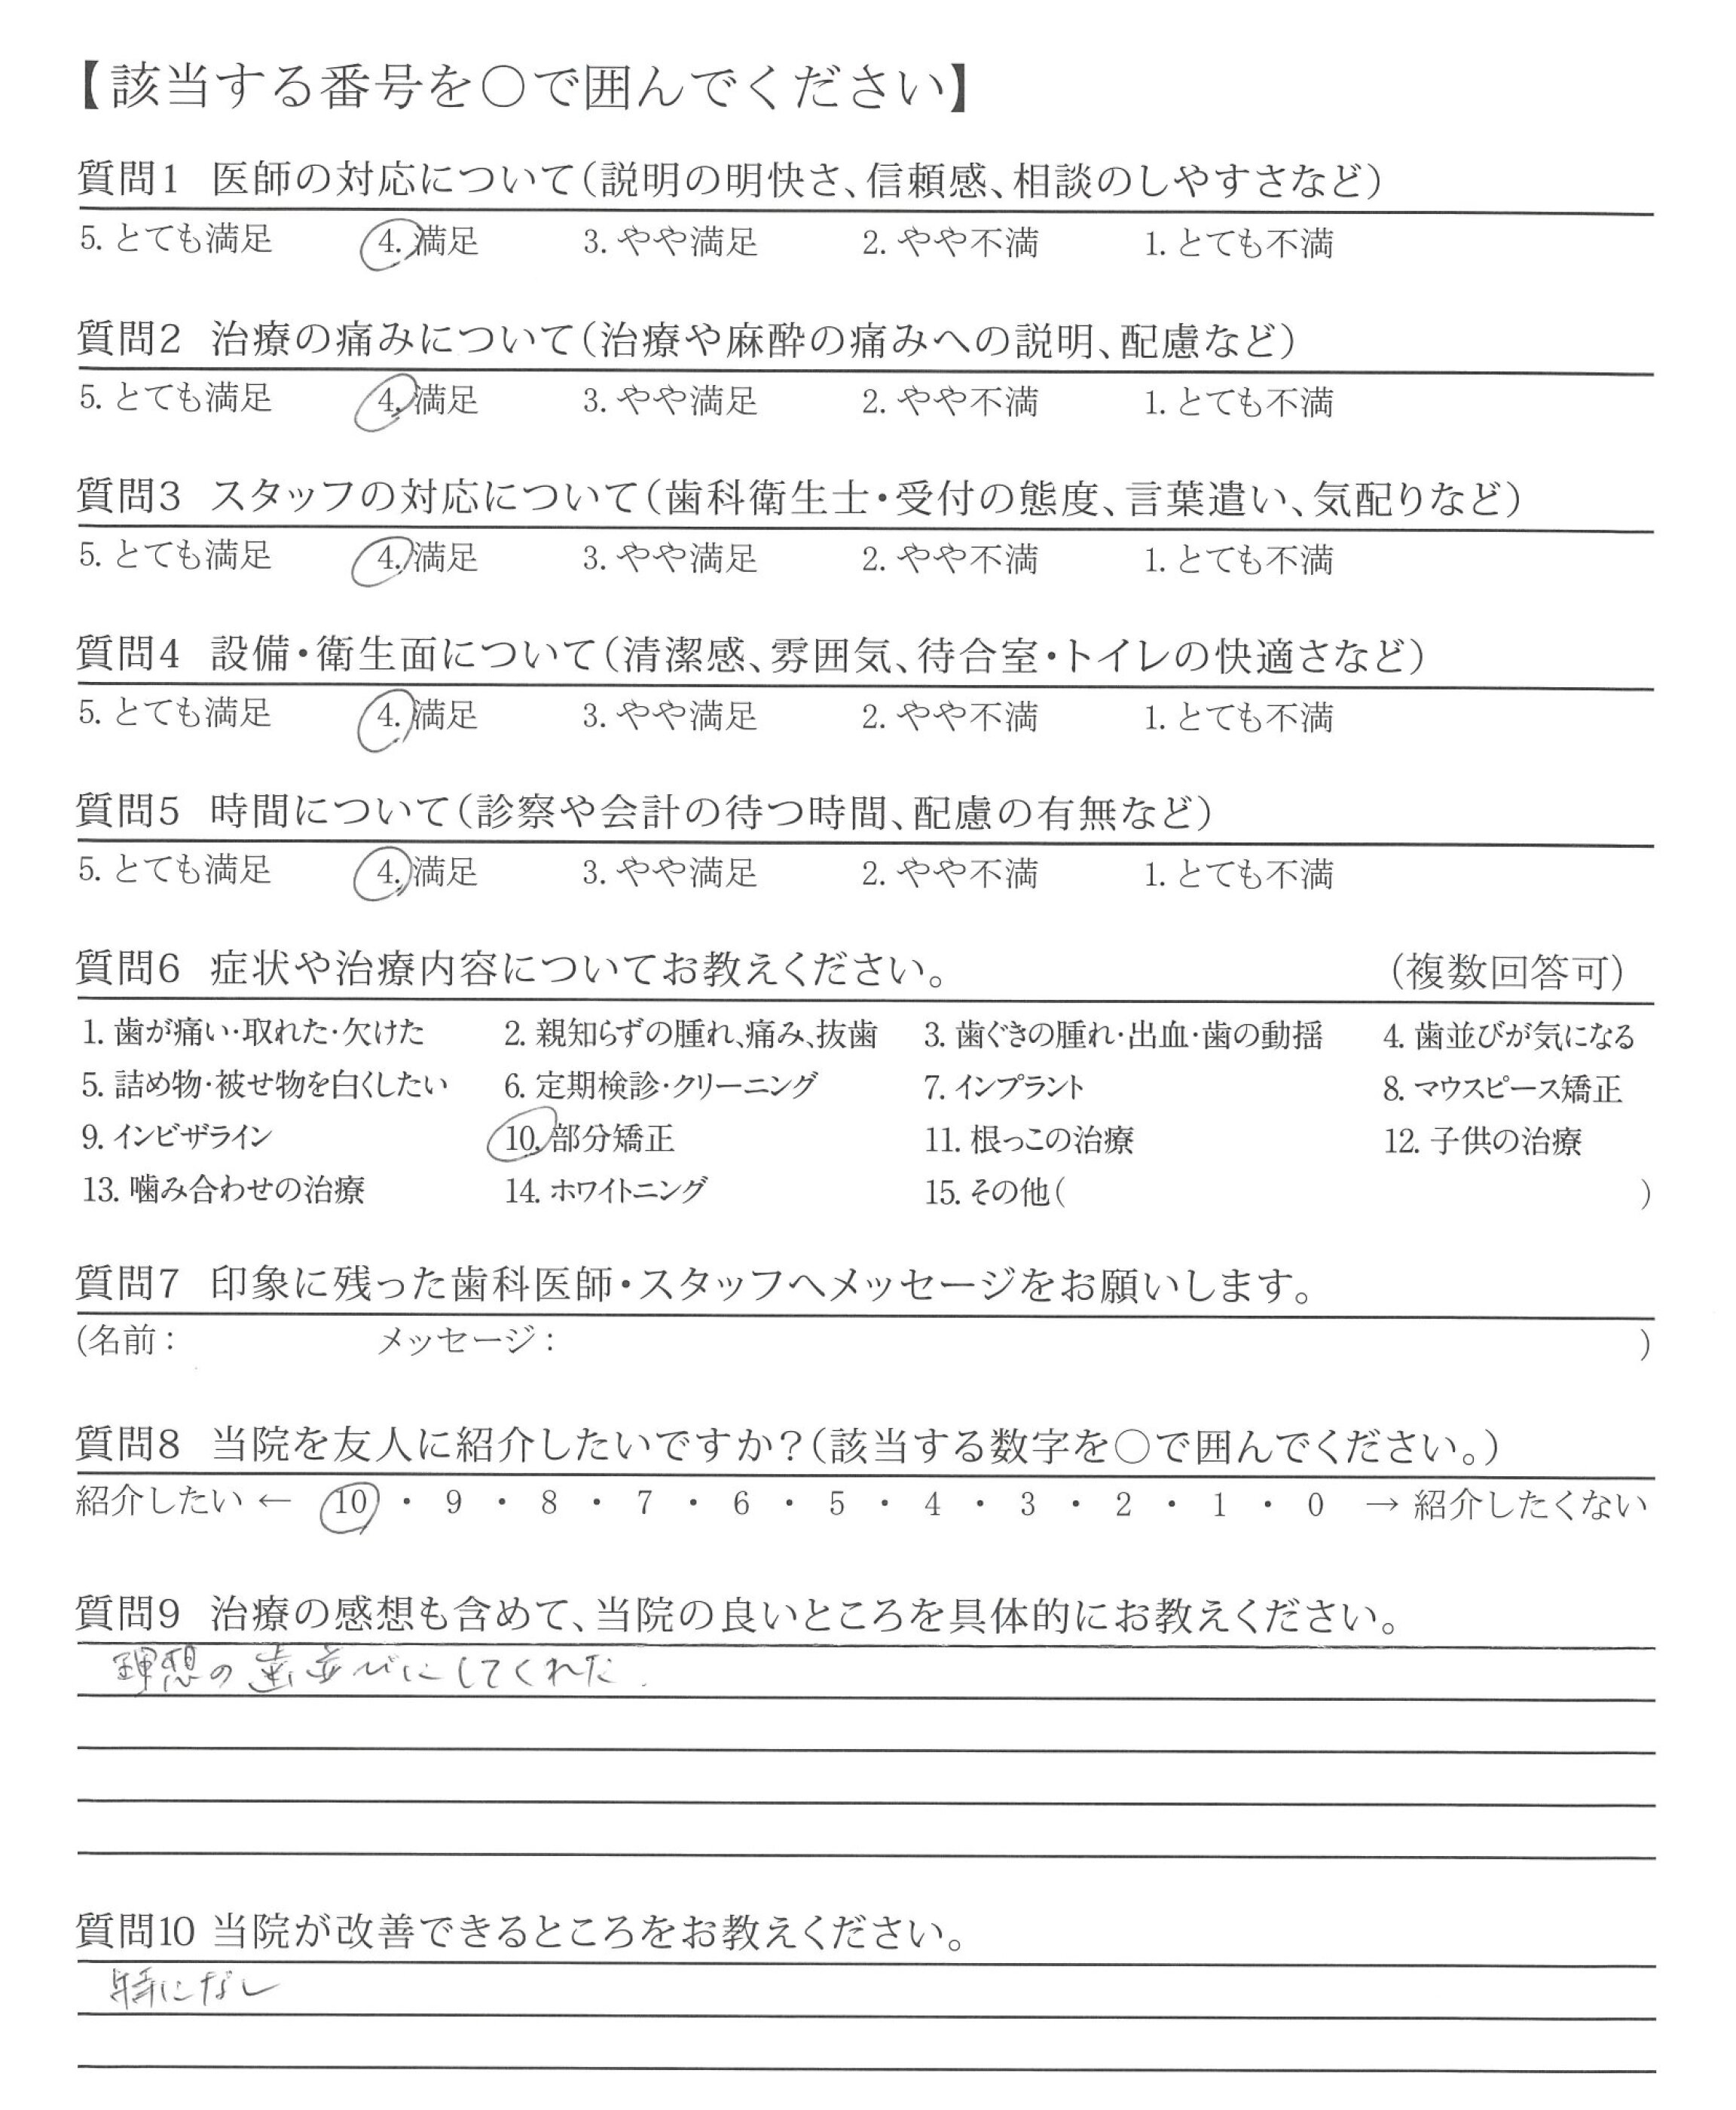 【該当する番号を○で囲んでください】
質問1 医師の対応について(説明の明快さ、信頼感、相談のしやすさなど)
5. とても満足 4. 満足 3. やや満足 2. やや不満 1. とても不満
質問2 治療の痛みについて(治療や麻酔の痛みへの説明、配慮など)
5. とても満足 4. 満足 3. やや満足 2. やや不満 1. とても不満
質問3 スタッフの対応について(歯科衛生士・受付の態度、言葉遣い、気配りなど)
5. とても満足 4. 満足 3. やや満足 2. やや不満 1. とても不満
質問4 設備・衛生面について(清潔感、雰囲気、待合室・トイレの快適さなど)
5. とても満足 4. 満足 3. やや満足 2. やや不満 1. とても不満
質問5 時間について(診察や会計の待つ時間、配慮の有無など)
5. とても満足 4. 満足 3. やや満足 2. やや不満 1. とても不満
質問6 症状や治療内容についてお教えください。 (複数回答可)
1. 歯が痛い・取れた・欠けた 2. 親知らずの腫れ、痛み、抜歯 3. 歯ぐきの腫れ・出血・歯の動揺 4. 歯並びが気になる
5. 詰め物・被せ物を白くしたい 6. 定期検診・クリーニング 7. インプラント 8. マウスピース矯正
9. インビザライン 10. 部分矯正 11. 根っこの治療 12. 子供の治療
13. 噛み合わせの治療 14. ホワイトニング 15. その他( )
質問7 印象に残った歯科医師・スタッフへメッセージをお願いします。
(名前: メッセージ: )
質問8 当院を友人に紹介したいですか?(該当する数字を○で囲んでください。)
紹介したい ← 10 ・ 9 ・ 8 ・ 7 ・ 6 ・ 5 ・ 4 ・ 3 ・ 2 ・ 1 ・ 0 → 紹介したくない
質問9 治療の感想も含めて、当院の良いところを具体的にお教えください。
理想の歯並びにしてくれた.
質問10 当院が改善できるところをお教えください。
特になし